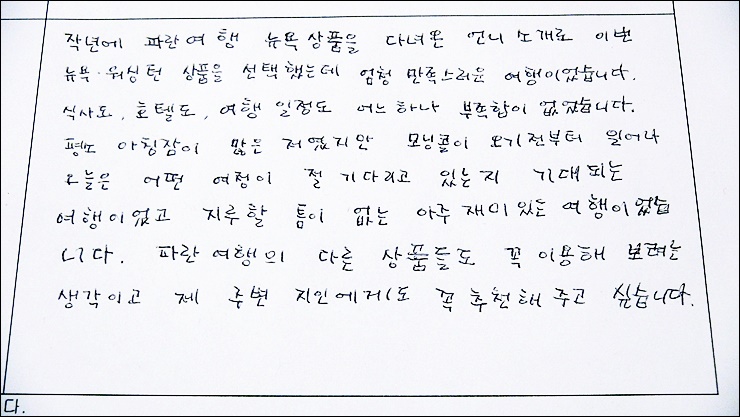 작년에 파란여행 뉴욕상품을 다녀온 언니 소개로 이번
뉴욕·워싱턴 상품을 선택했는데 엄청 만족스러운 여행이었습니다.
식사도, 호텔도, 여행 일정도 어느하나 부족함이 없었습니다.
평소 아침잠이 많은 저였지만 모닝콜이 오기전부터 일어나
오늘은 어떤 여정이 절 기다리고 있는지 기대되는
여행이었고 지루할 틈이 없는 아주 재미있는 여행이었습
니다. 파란여행의 다른 상품들도 꼭 이용해 보려는
생각이고 제 주변 지인에게도 꼭 추천해 주고 싶습니다.
다.